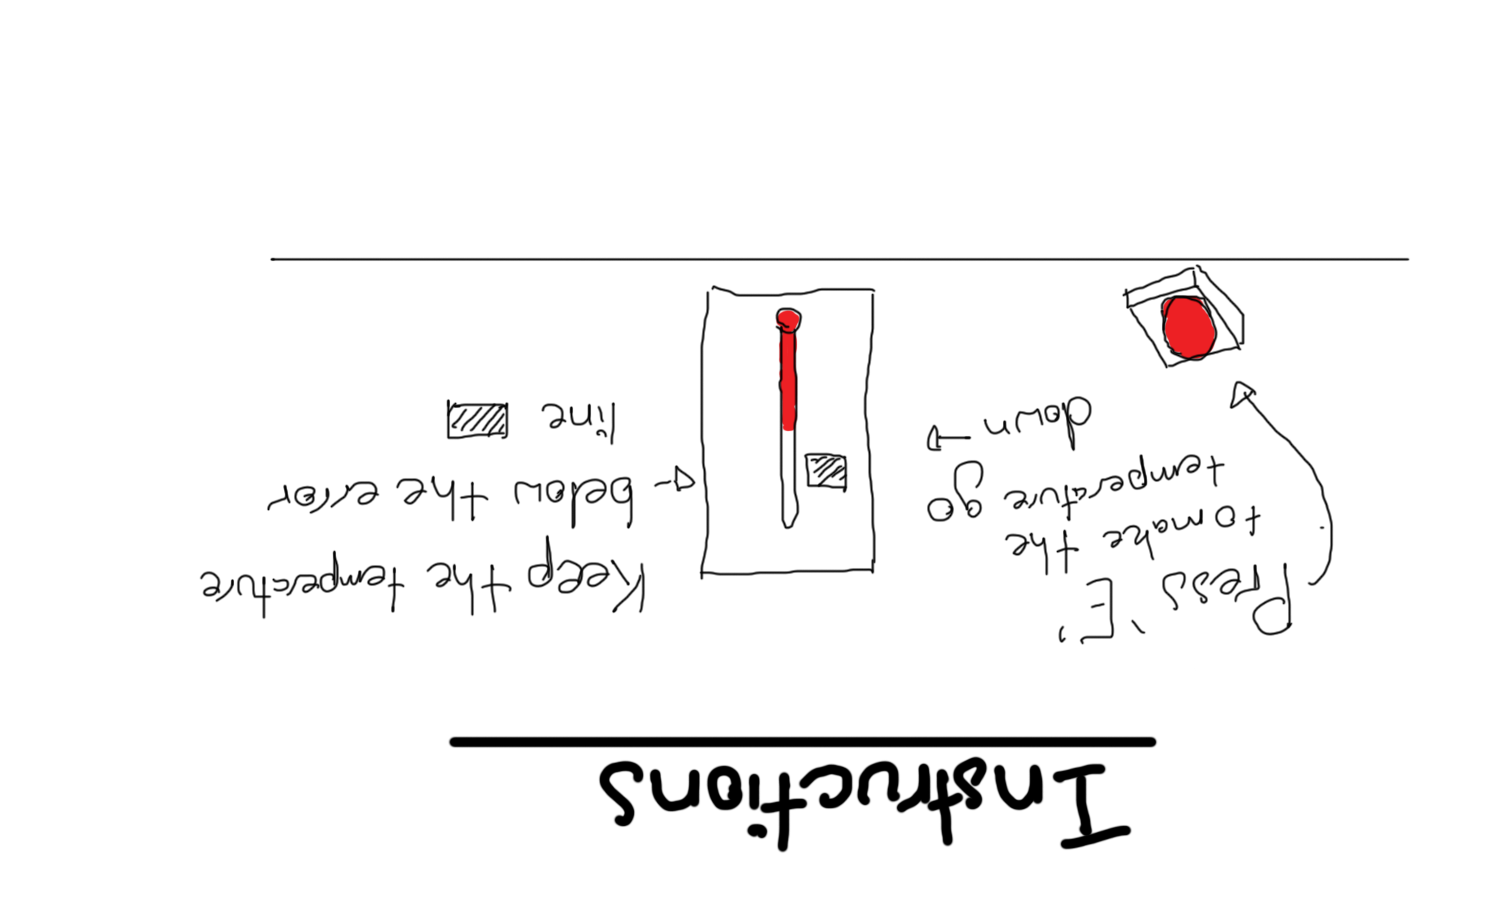 Instructions
Press 'E'
to make the
temperature go
down
Keep the temperature
below the error
line